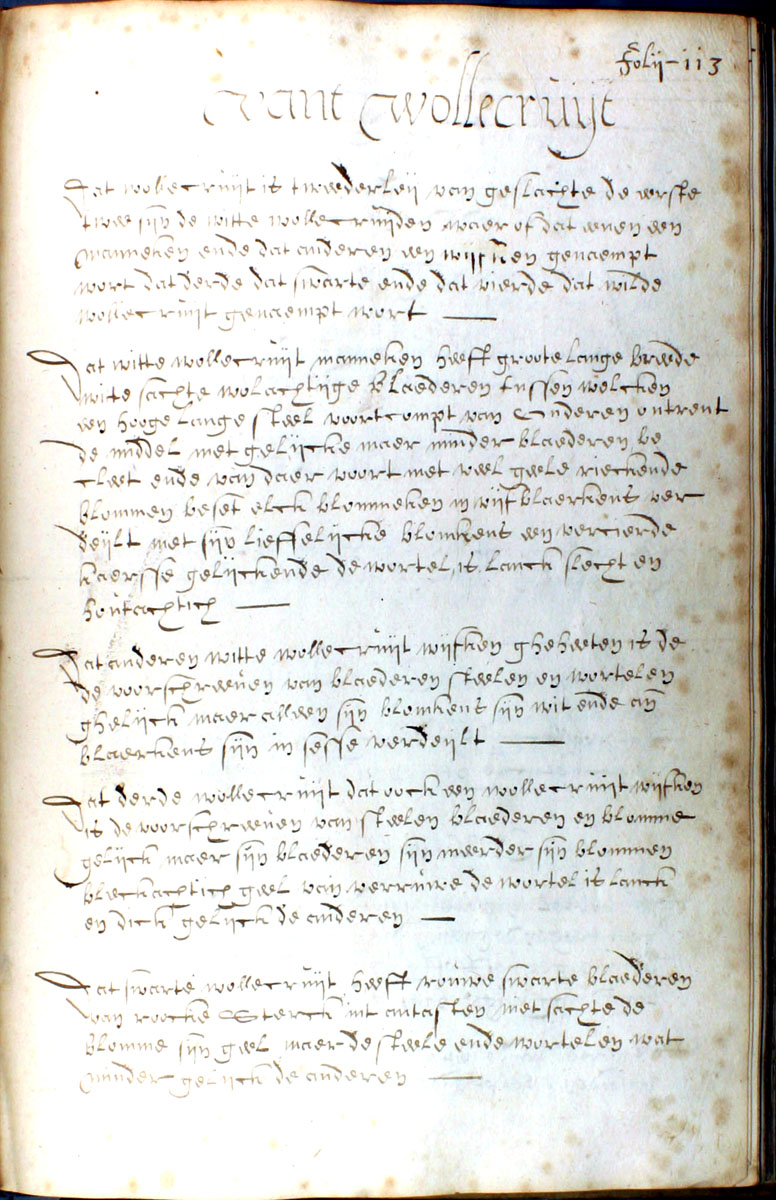 Folij 113
Vant Wollecruijt
Dat wollecruijt is tweederleij van geslachte de eerste
twee sijn de witte wollecruijden waer of dat eenen een
manneken ende dat anderen een wijfken genaempt
wort dat derde dat swarte ende dat vierde dat wilde
wollecruijt genaempt wort
Dat witte wollecruijt manneken heeft groote lange breede
witte sachte wolachtijge blaederen tussen welcken
een hooge lange steel voortcompt van onderen ontrent
de middel met gelijcke maer minder blaederen be
cleet ende van daer voort met veel geele rieckende
blommen beset elck blommeken in vijf blaerkens ver
deijlt met sijn lieffelijcke blomkens een vercierde
kaersse gelijckende de wortel is lanck slecht en
houtachtich
Dat anderen witte wollecruijt wijfken gheheeten is de
de voorschreeven van blaederen steelen en wortelen
ghelijck maer alleen sijn blomkens sijn wit ende an
blaerkens sijn in sesse verdeijlt
Dat derde wollecruijt dat oock een wollecruijt wijfken
is de voorschreeven van steelen blaederen en blomme
gelijck maer sijn blaederen sijn meerder sijn blommen
bleckachtich geel van verruwe de wortel is lanck
en dick gelijck de anderen
Dat swarte wollecruijt heeft rouwe swarte blaederen
van roocke sterck int antasten niet sachte de
blomme sijn geel maer de steele ende wortelen wat
minder gelijck de anderen